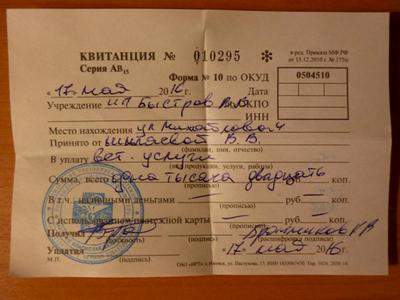 в ред. Приказа МФ РФ
КВИТАНЦИЯ № 010295
от 15.12.2010 г. № 173н
Серия АВ15
Форма № 10 по ОКУД 0504510
« 17 » мая 2016 г.
Учреждение ИП Быстров по ОКПО
ИНН
Место нахождения ул
Принято от В.В.
(фамилия, имя, отчество)
В уплату вет. услуги
(вид продукции, услуги, работы)
Сумма, всего одна тысяча двадцать руб. — коп.
В т.ч. наличными деньгами — руб. — коп.
С использованием платежной карты — руб. — коп.
Получил
(подпись) (расшифровка подписи)
Уплатил « 17 » мая 2016 г.
(подпись)
М.П.